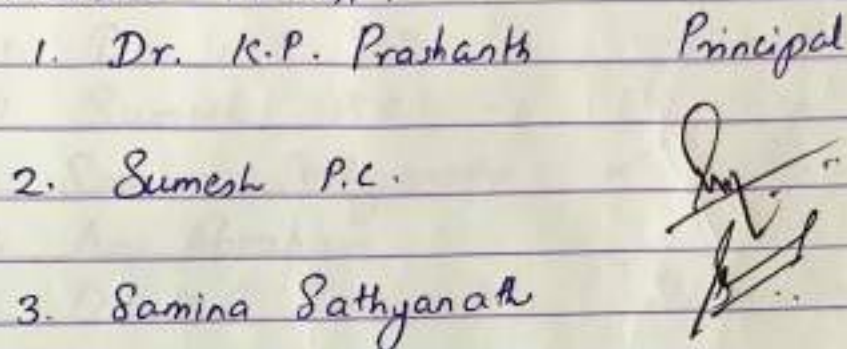 1. Dr. K.P. Prashanth Principal
2. Sumesh P.C.
3. Samina Sathyanath